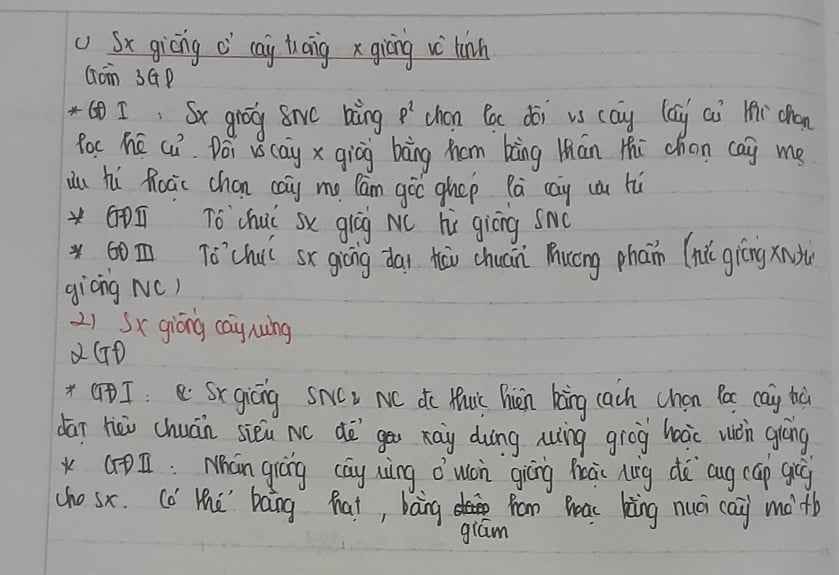 c) Sx giống ở cây trồng x giống vô tính
Gồm 3GĐ
* GĐ I : Sx giống SNC bằng p² chọn lọc đối vs cây lấy củ thì chọn
lọc hệ củ. Đối vs cây x giống bằng hom bằng thân thì chọn cây mẹ
ưu tú hoặc chọn cây mẹ làm gốc ghép là cây ưu tú
* GĐ II Tổ chức sx giống NC từ giống SNC
* GĐ III Tổ chức sx giống đạt tiêu chuẩn thương phẩm (tức giống XN từ
giống NC)
2) Sx giống cây rừng
2 GĐ
* GĐ I : Sx giống SNC & NC đc thực hiện bằng cách chọn lọc cây trội
đạt tiêu chuẩn siêu NC để xây dựng rừng giống hoặc vườn giống
* GĐ II : Nhân giống cây rừng ở vườn giống hoặc rừng để cug cấp giống
cho sx. Có thể bằng hạt, bằng giâm hom hoặc bằng nuôi cấy mô tb